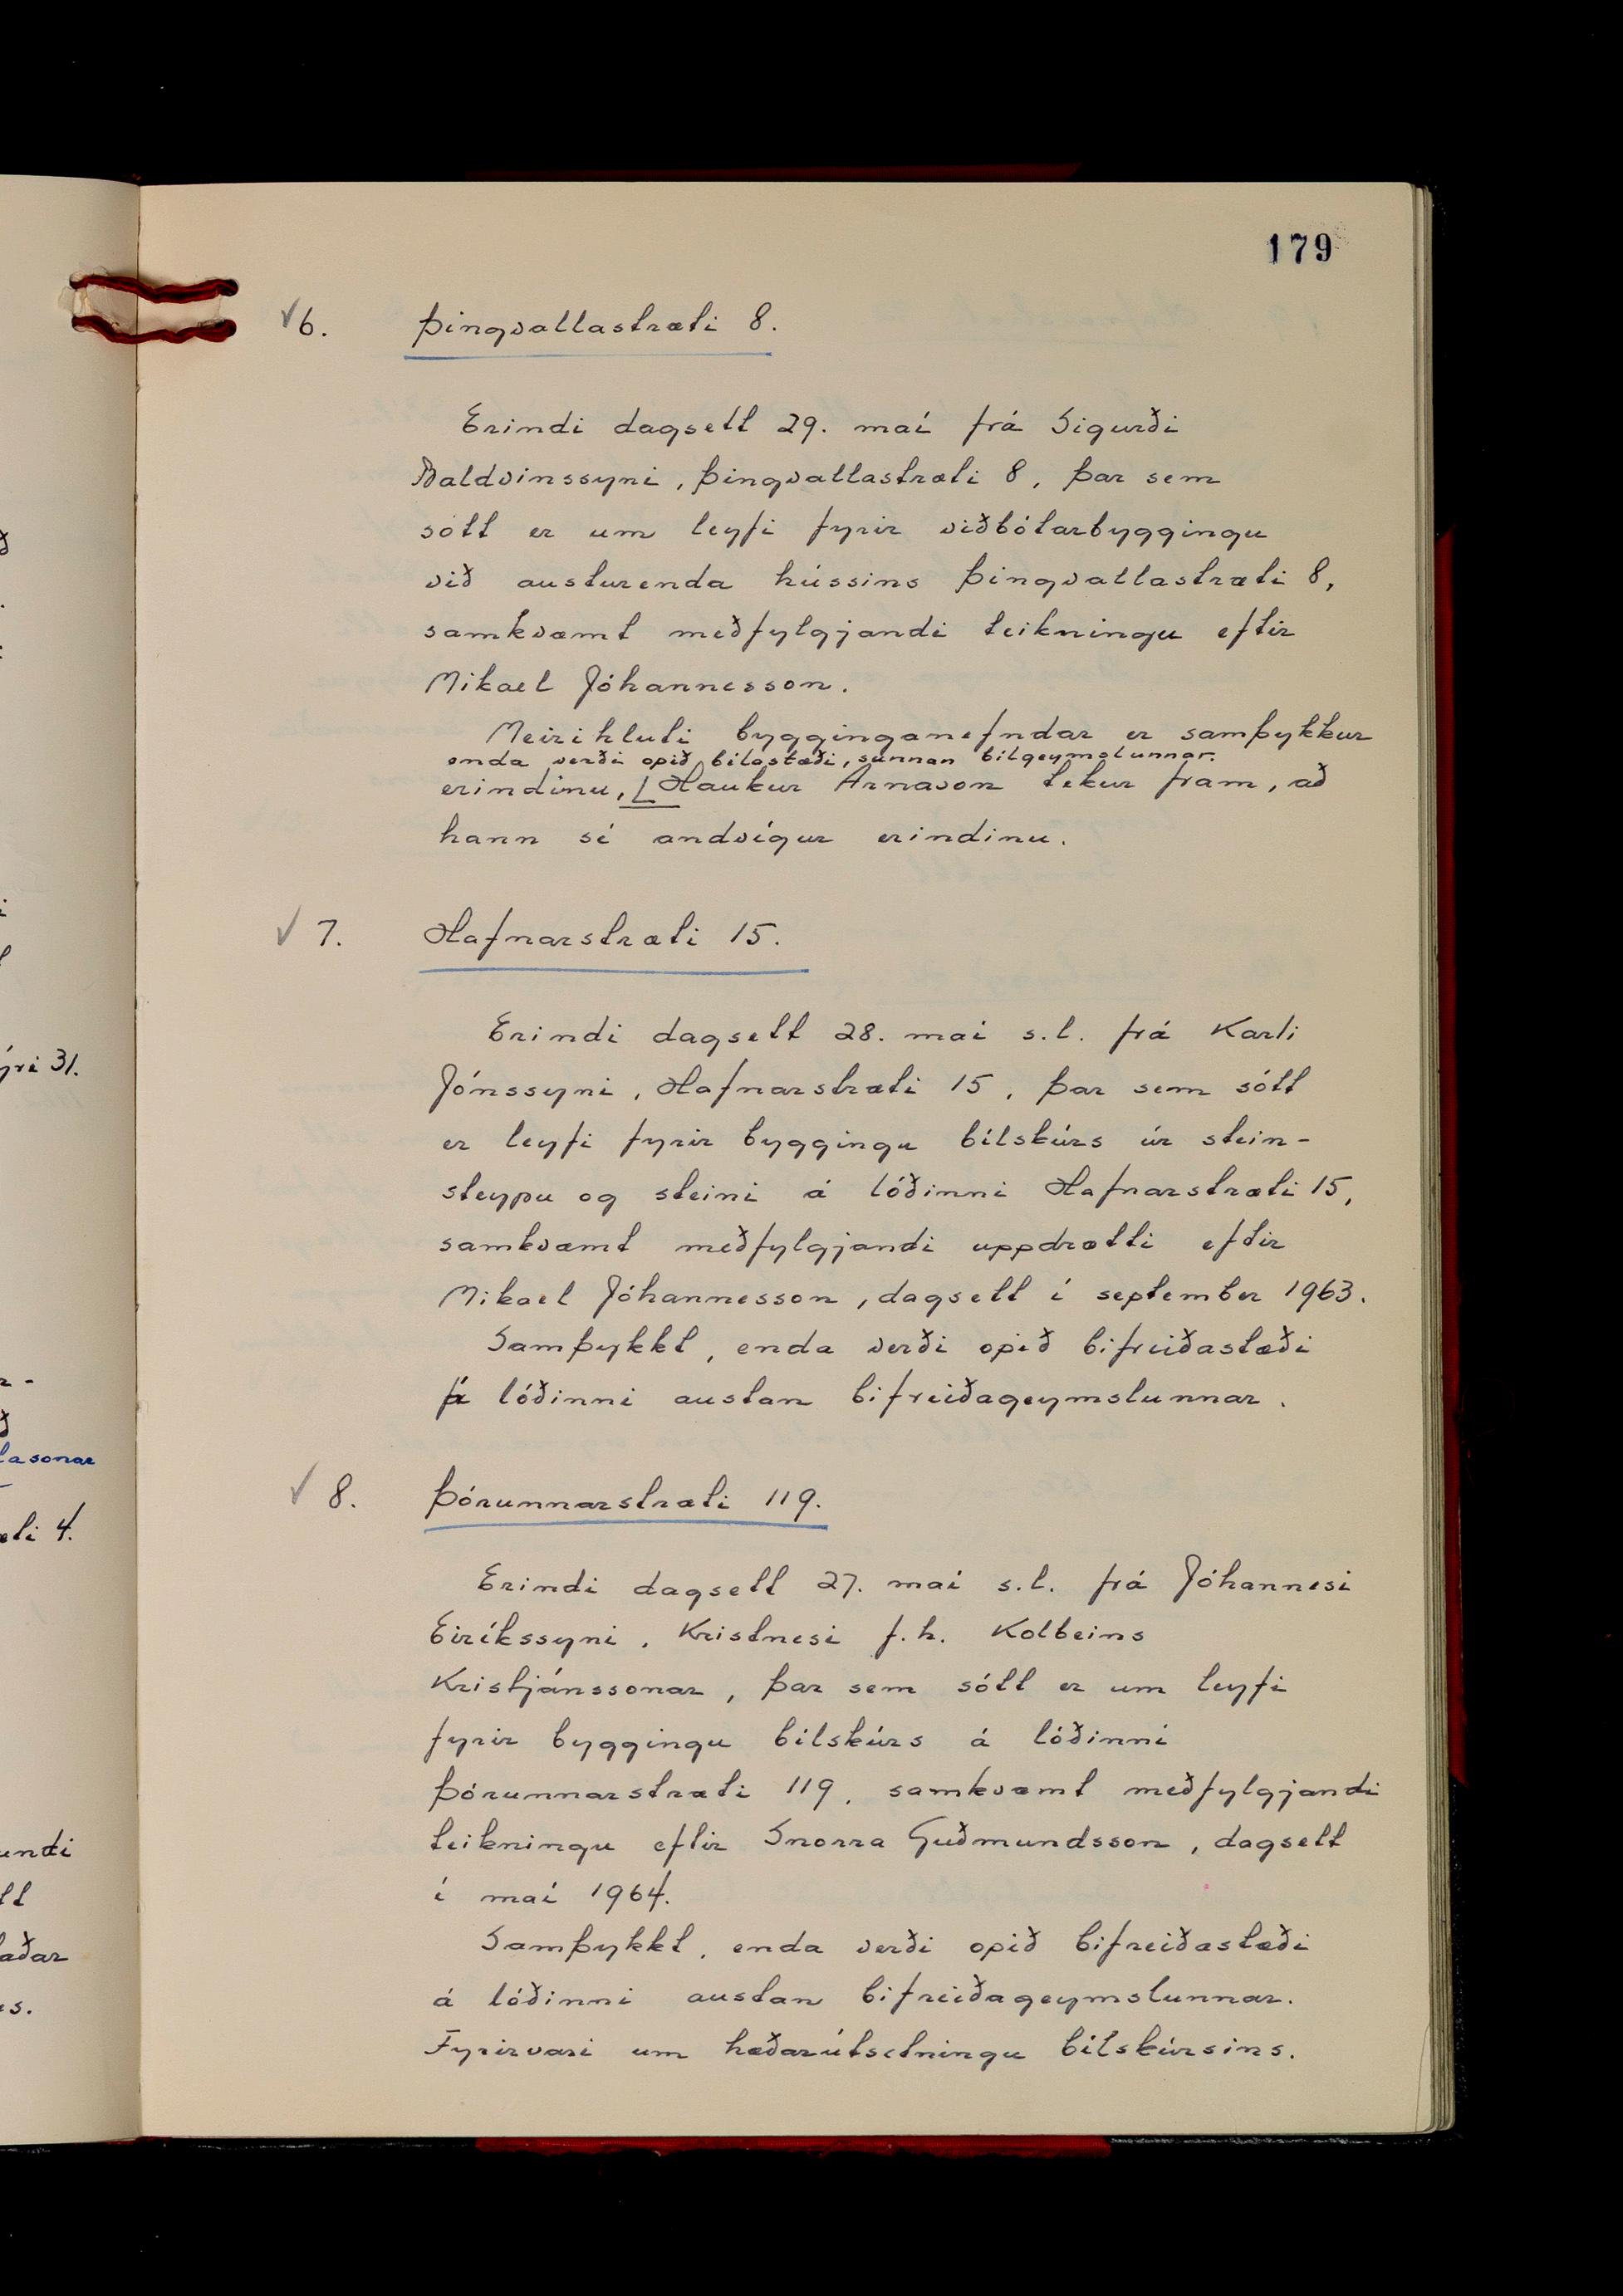 179
✓6. Þingvallastræti 8.
Erindi dagsett 29. maí frá Sigurði
Baldvinssyni, Þingvallastræti 8, þar sem
sótt er um leyfi fyrir viðbótarbyggingu
við austurenda hússins Þingvallastræti 8,
samkvæmt meðfylgjandi teikningu eftir
Mikael Jóhannesson.
Meirihluti bygginganefndar er samþykkur
enda verði opið bílastæði, sunnan bílgeymslunnar.
erindinu, Haukur Árnason tekur fram, að
hann sé andvígur erindinu.
✓ 7. Hafnarstræti 15.
Erindi dagsett 28. maí s.l. frá Karli
Jónssyni, Hafnarstræti 15, þar sem sótt
er leyfi fyrir byggingu bílskúrs úr stein-
steypu og steini á lóðinni Hafnarstræti 15,
samkvæmt meðfylgjandi uppdrætti eftir
Mikael Jóhannesson, dagsett í september 1963.
Samþykkt, enda verði opið bifreiðastæði
á lóðinni austan bifreiðageymslunnar.
✓ 8. Þórunnarstræti 119.
Erindi dagsett 27. maí s.l. frá Jóhannesi
Eiríkssyni, Kristnesi f.h. Kolbeins
Kristjánssonar, þar sem sótt er um leyfi
fyrir byggingu bílskúrs á lóðinni
Þórunnarstræti 119, samkvæmt meðfylgjandi
teikningu eftir Snorra Guðmundsson, dagsett
í maí 1964.
Samþykkt, enda verði opið bifreiðastæði
á lóðinni austan bifreiðageymslunnar.
Fyrirvari um hæðarútsetningu bílskúrsins.